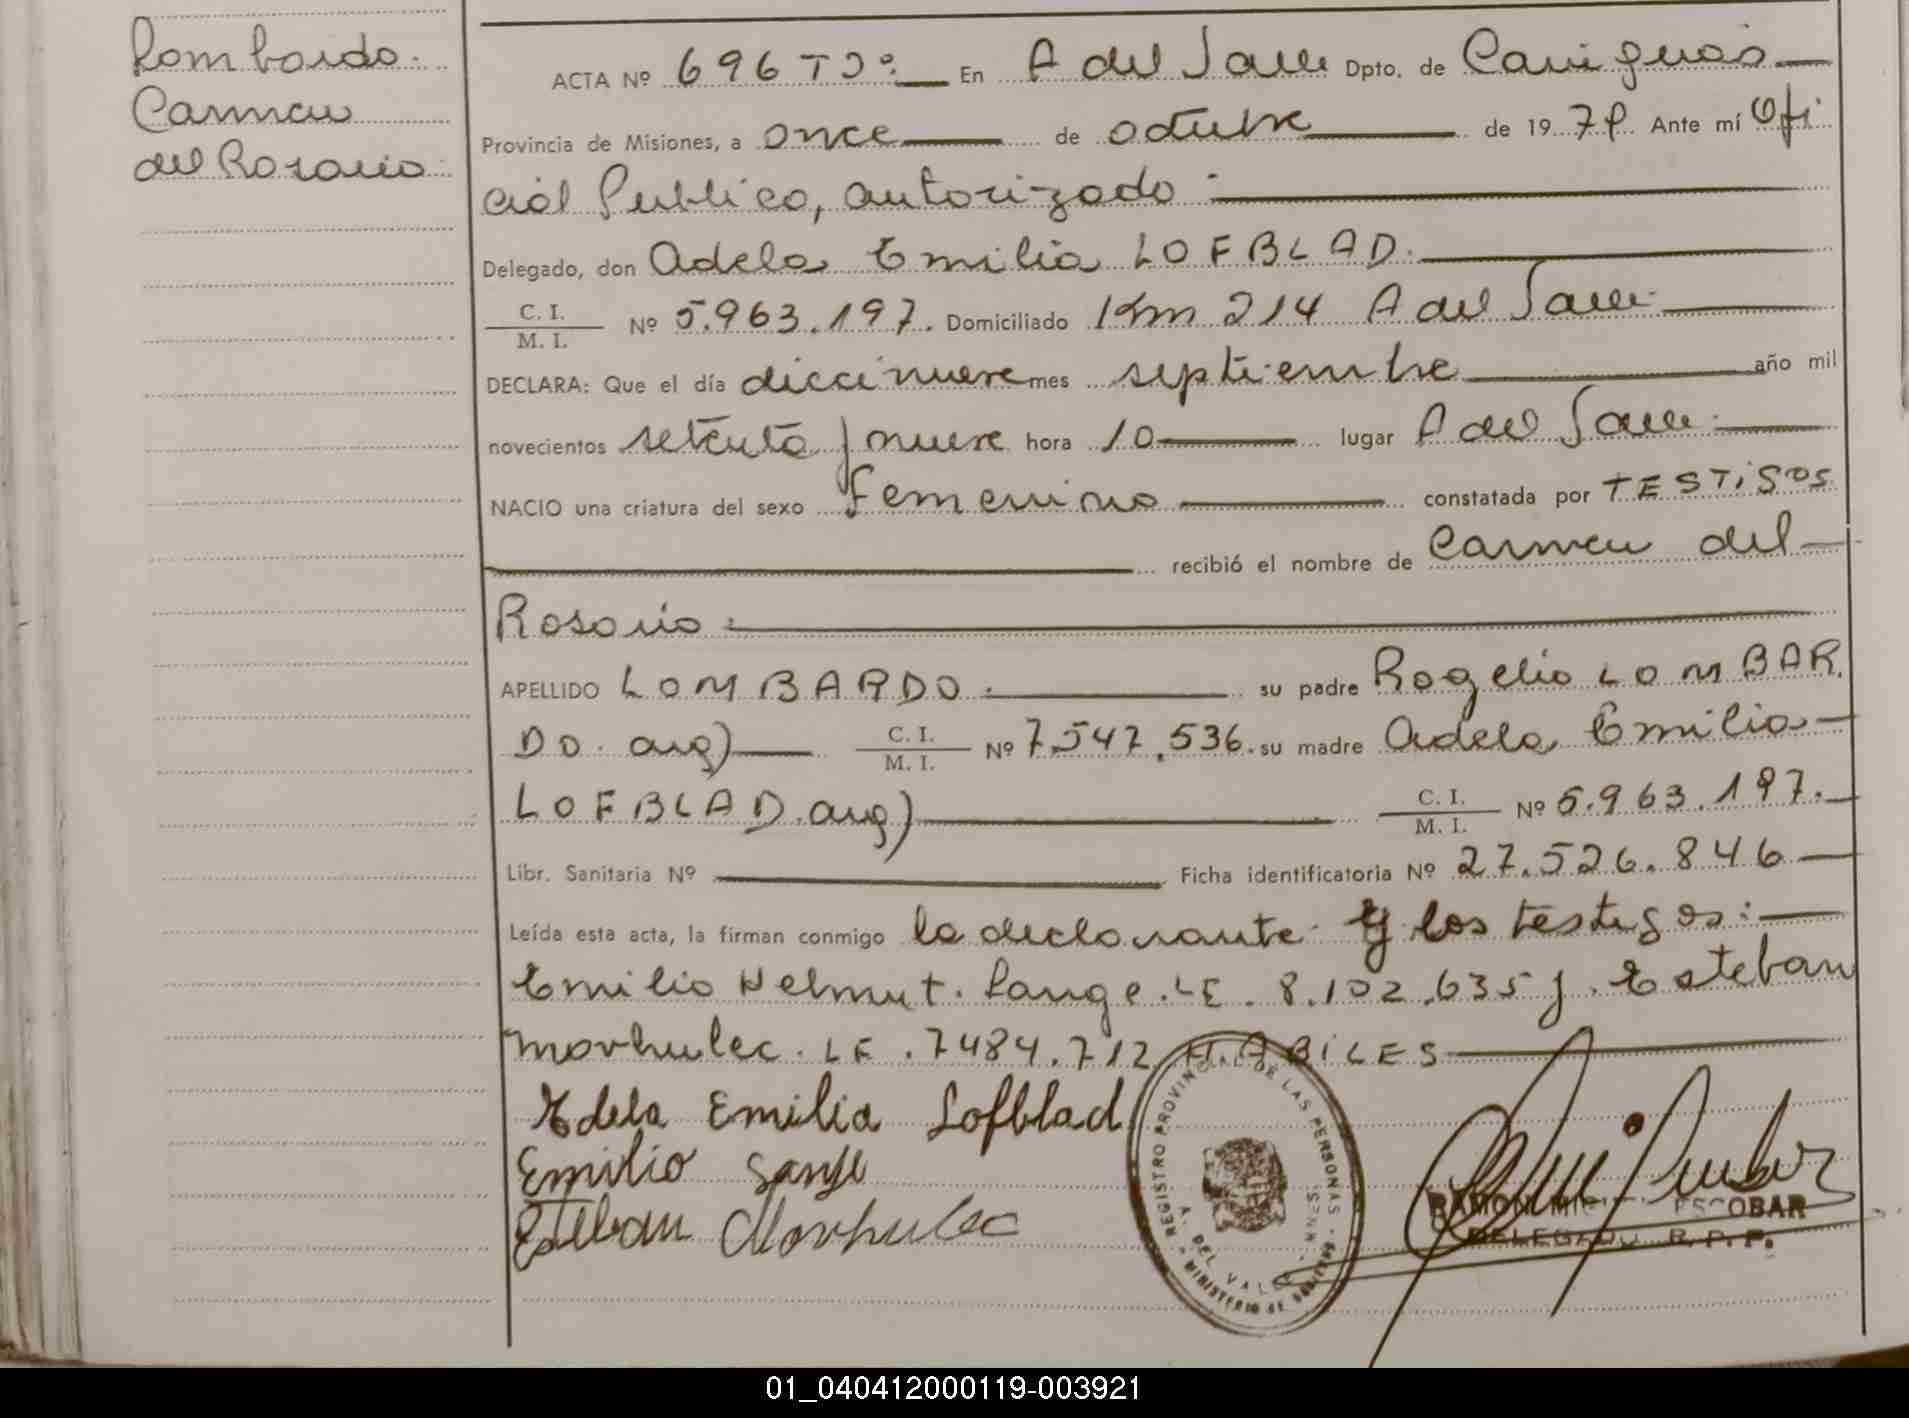 Lombardo.
Carmen
del Rosario
ACTA Nº 696 TJº: En A del Valle Dpto. de Cainguas
Provincia de Misiones, a once de octubre de 1979. Ante mí Ofi
cial Publico, autorizado
Delegado, don Adela Emilia LOFBLAD.
C. I. / M. I. Nº 5.963.197. Domiciliado Km 214 A del Valle
DECLARA: Que el día diecinueve mes septiembre año mil
novecientos setenta y nueve hora 10 lugar A del Valle
NACIO una criatura del sexo femenino constatada por TESTIGOS
recibió el nombre de Carmen del
Rosario
APELLIDO LOMBARDO su padre Rogelio LOMBAR
DO. arg) C. I. / M. I. Nº 7.547.536. su madre Adela Emilia
LOFBLAD. arg) C. I. / M. I. Nº 5.963.197.
Libr. Sanitaria Nº Ficha identificatoria Nº 27.526.846
Leída esta acta, la firman conmigo la declarante y los testigos:
Emilio Helmut. Lange. LE. 8.102.635 y. Esteban
Morhulec. LE. 7484.712 HABILES
Adela Emilia Lofblad
Emilio Lange
Esteban Morhulec
REGISTRO PROVINCIAL DE LAS PERSONAS - MISIONES
A. DEL VALLE
MINISTERIO DE GOBIERNO
RAMON ESCOBAR
DELEGADO R. P. P.
01_040412000119-003921